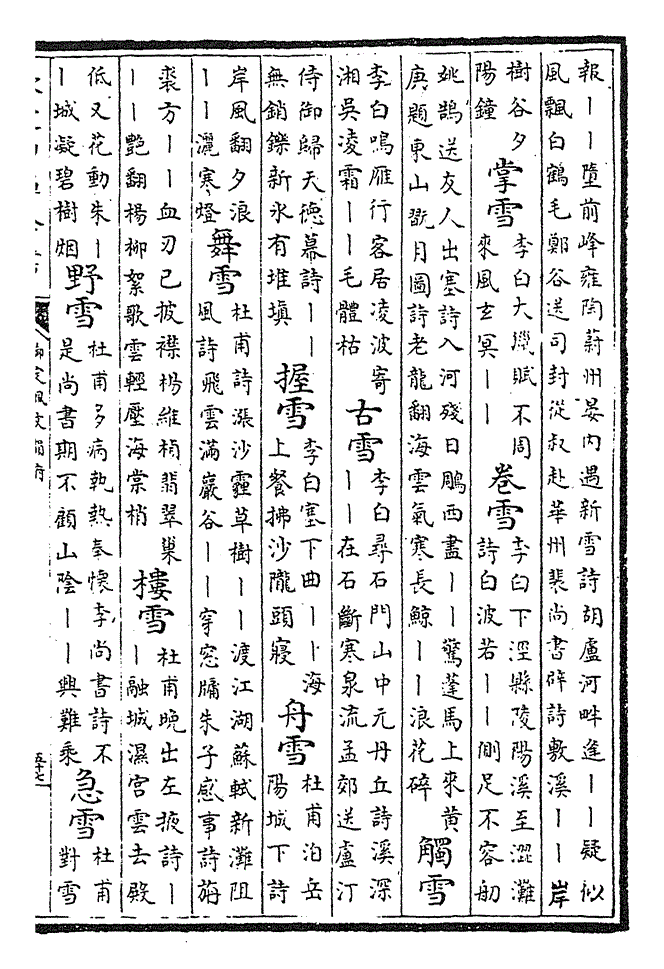 報丨丨墮前峰雍陶蔚州晏内遇新雪詩胡盧河畔逢丨丨疑似
風飄白鶴毛鄭谷送司封從叔赴華州裴尚書辟詩敷溪丨丨岸
樹谷夕
陽鐘
掌雪
李白大獵賦不周
來風玄冥丨丨
卷雪
李白下涇縣陵陽溪至澀灘
詩白波若丨丨側足不容舠
姚鵠送友人出塞詩入河殘日鵰西盡丨丨驚蓬馬上來黄
庚題東山翫月圖詩老龍翻海雲氣寒長鯨丨丨浪花碎
觸雪
李白鳴雁行客居凌波寄
湘吳凌霜丨丨毛體枯
古雪
李白尋石門山中元丹丘詩溪深
丨丨在石斷寒泉流孟郊送盧汀
侍御歸天德幕詩丨丨
無銷鑠新氷有堆塡
握雪
李白塞下曲丨丨海
上餐拂沙隴頭寢
舟雪
杜甫泊岳
陽城下詩
岸風翻夕浪
丨丨灑寒燈
舞雪
杜甫詩漲沙霾草樹丨丨渡江湖蘇軾新灘阻
風詩飛雲滿巖谷丨丨穿窓牖朱子感事詩旃
裘方丨丨血刃已披襟楊維楨翡翠巢
丨丨艷翻楊柳絮歌雲輕壓海棠梢
樓雪
杜甫晚出左掖詩丨
丨融城濕宫雲去殿
低又花動朱丨
丨城凝碧樹烟
野雪
杜甫多病執熱奉懷李尚書詩不
是尚書期不顧山陰丨丨興難乘
急雪
杜甫
對雪
五十七